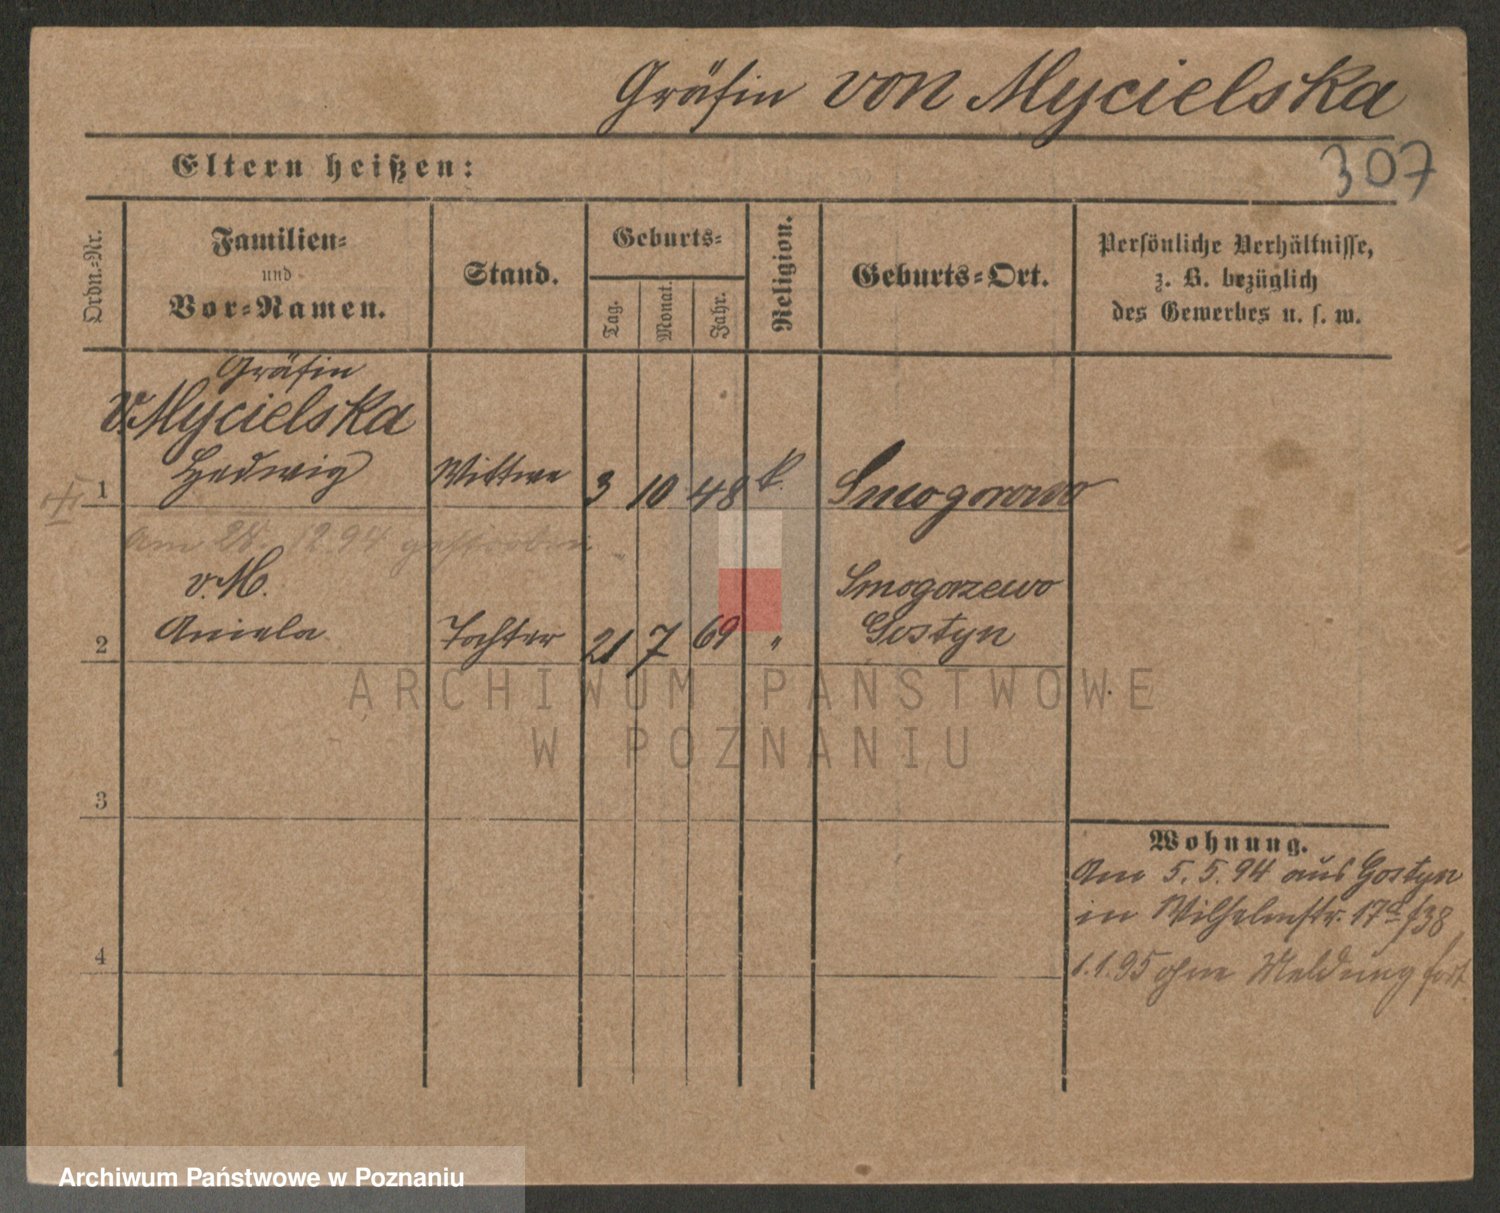 Gräfin von Mycielska
307
Eltern heißen:
Ordn.-Nr.
Familien-
und
Vor-Namen.
Stand.
Geburts-
Tag.
Monat.
Jahr.
Religion.
Geburts-Ort.
Persönliche Verhältnisse,
z. B. bezüglich
des Gewerbes u. s. w.
Gräfin
v. Mycielska
1 Hedwig Wittwe 3 10 48 k. Smogorowo
Am 28. 12. 94 gestorben
v. M. Smogorzewo
2 Aniela Tochter 21 7 69 " Gostyn
ARCHIWUM PAŃSTWOWE
W POZNANIU
3
Wohnung.
Am 5. 5. 94 aus Gostyn
in Wilhelmstr. 17a f38
4
1.1.95 ohne Meldung fort
Archiwum Państwowe w Poznaniu